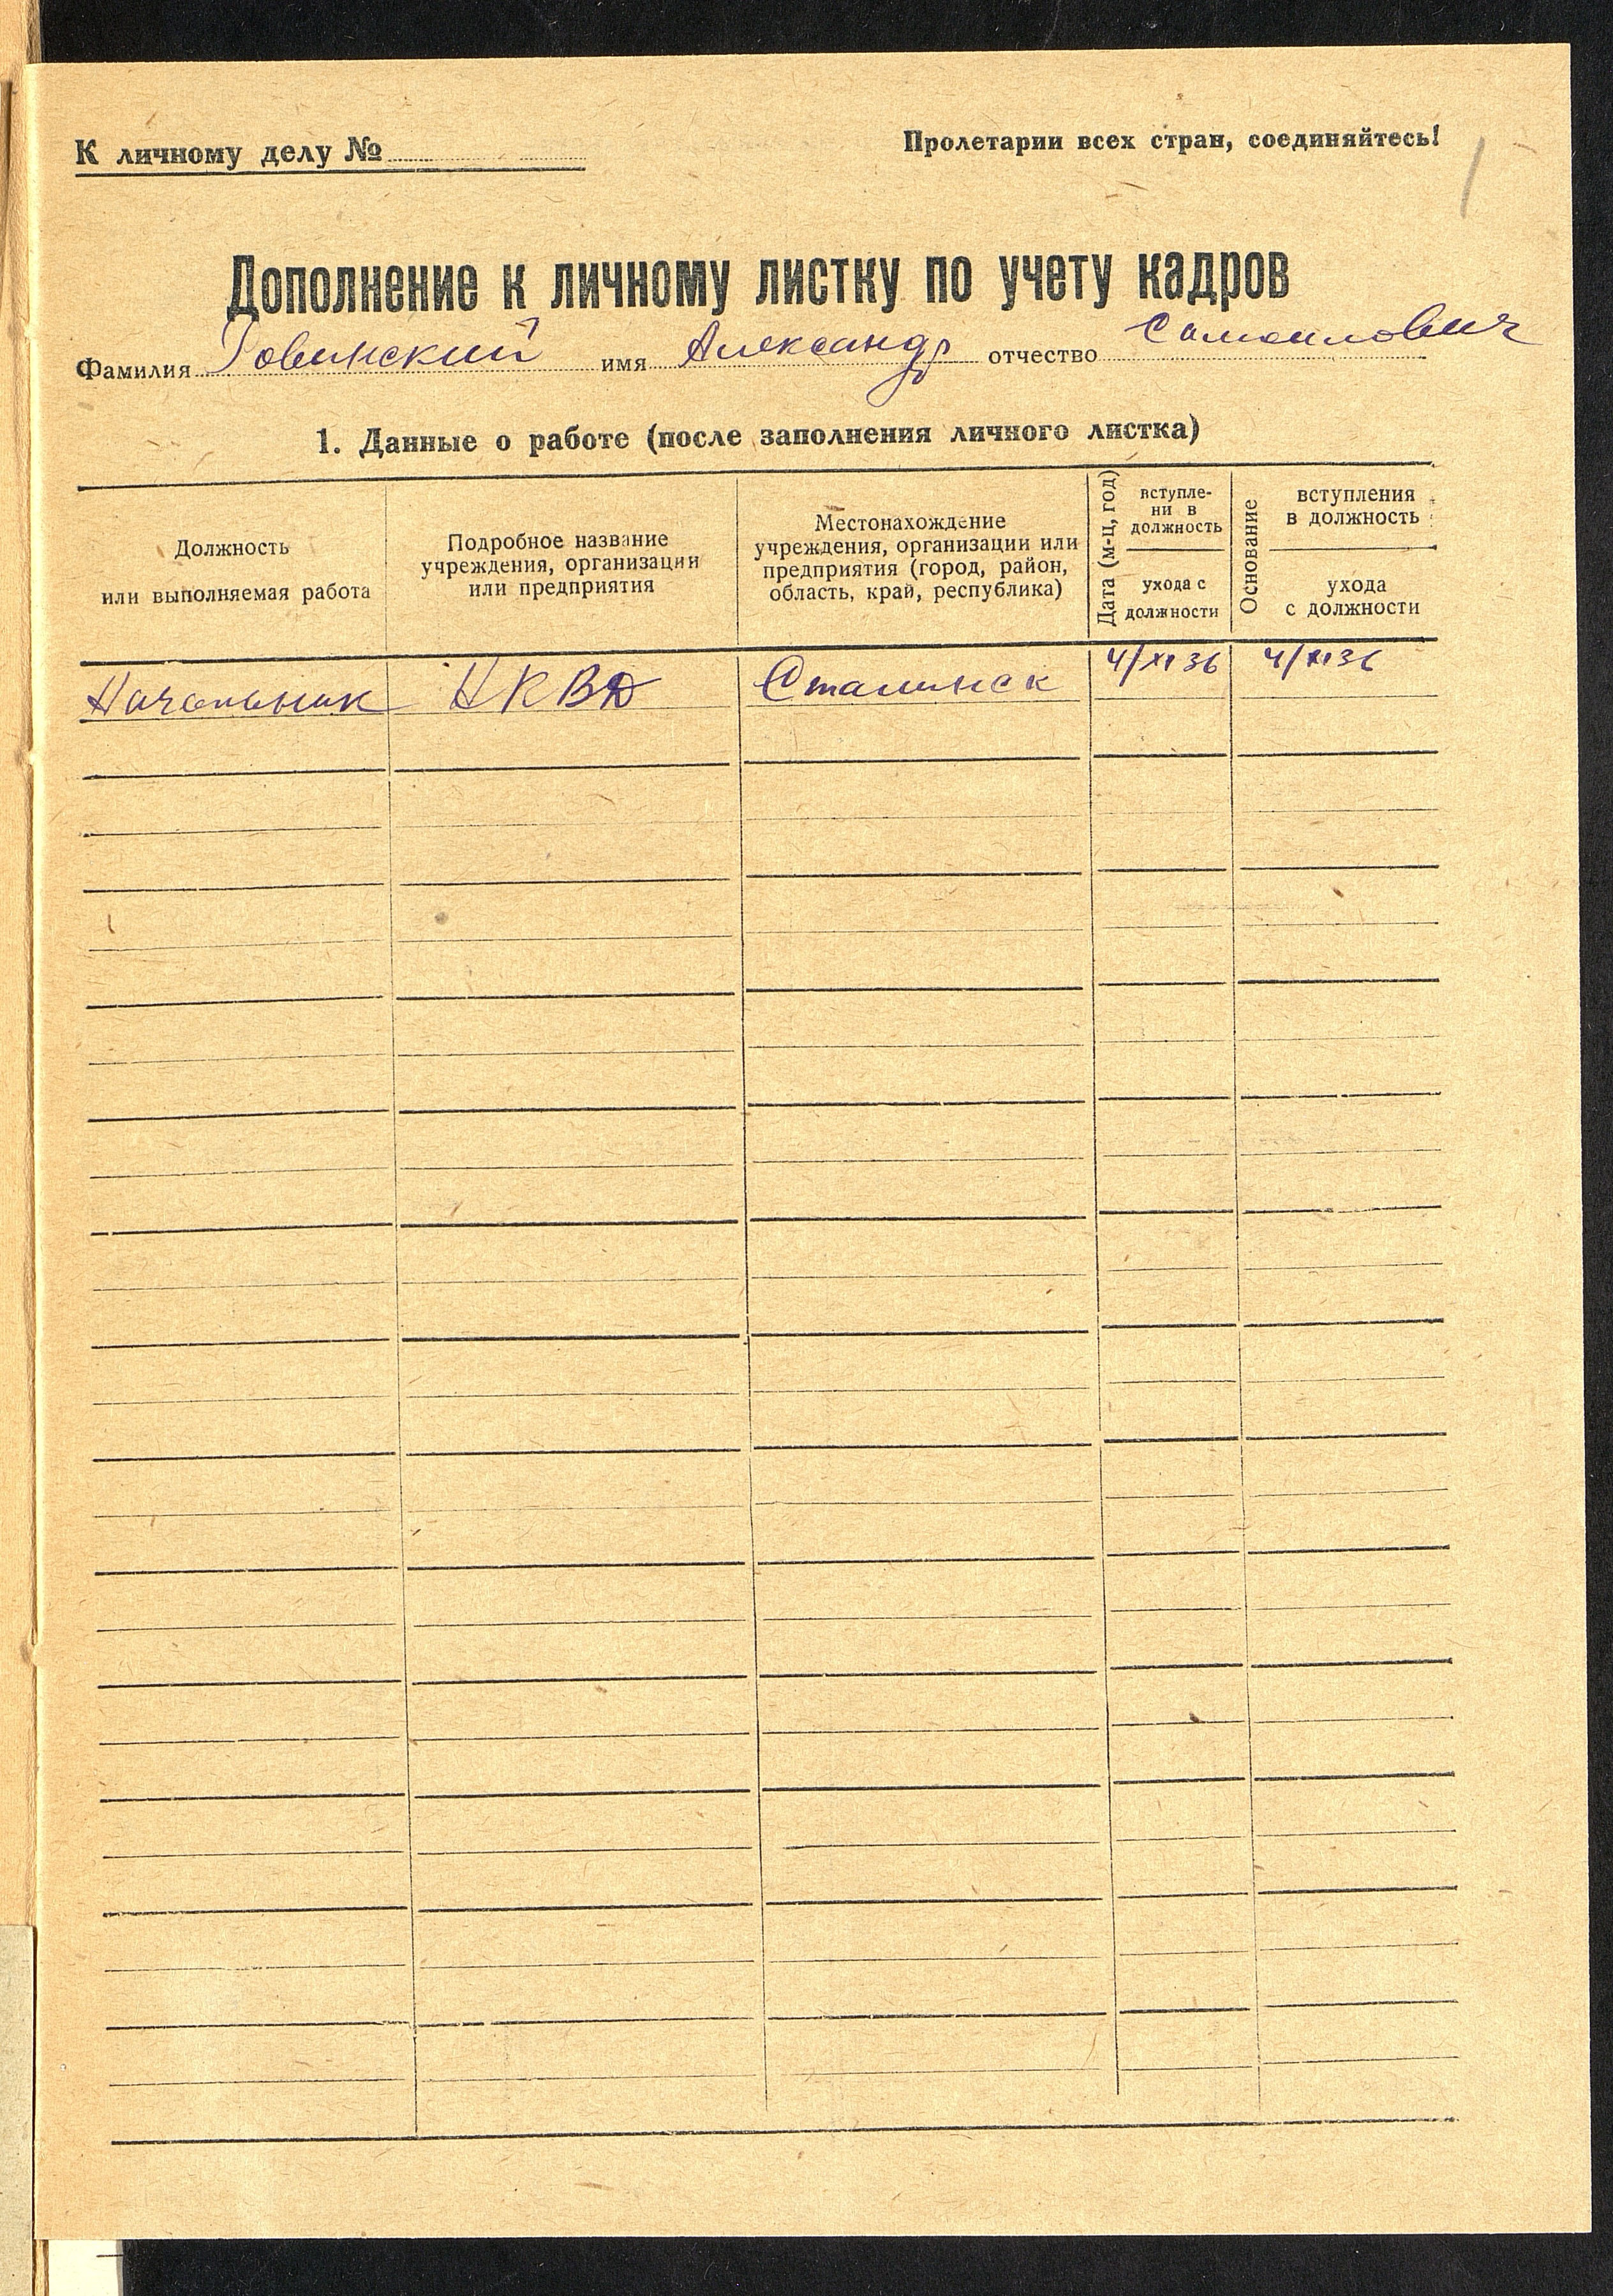 К личному делу №
Пролетарии всех стран, соединяйтесь!
1
Дополнение к личному листку по учету кадров
Фамилия Ровинский имя Александр отчество Самоилович
1. Данные о работе (после заполнения личного листка)
Должность
или выполняемая работа
Подробное название
учреждения, организации
или предприятия
Местонахождение
учреждения, организации или
предприятия (город, район,
область, край, республика)
Дата (м-ц, год)
вступле-
ни в
должность
ухода с
должности
Основание
вступления
в должность
ухода
с должности
Начальник НКВД Сталинск 4/XI 36 4/XI 36